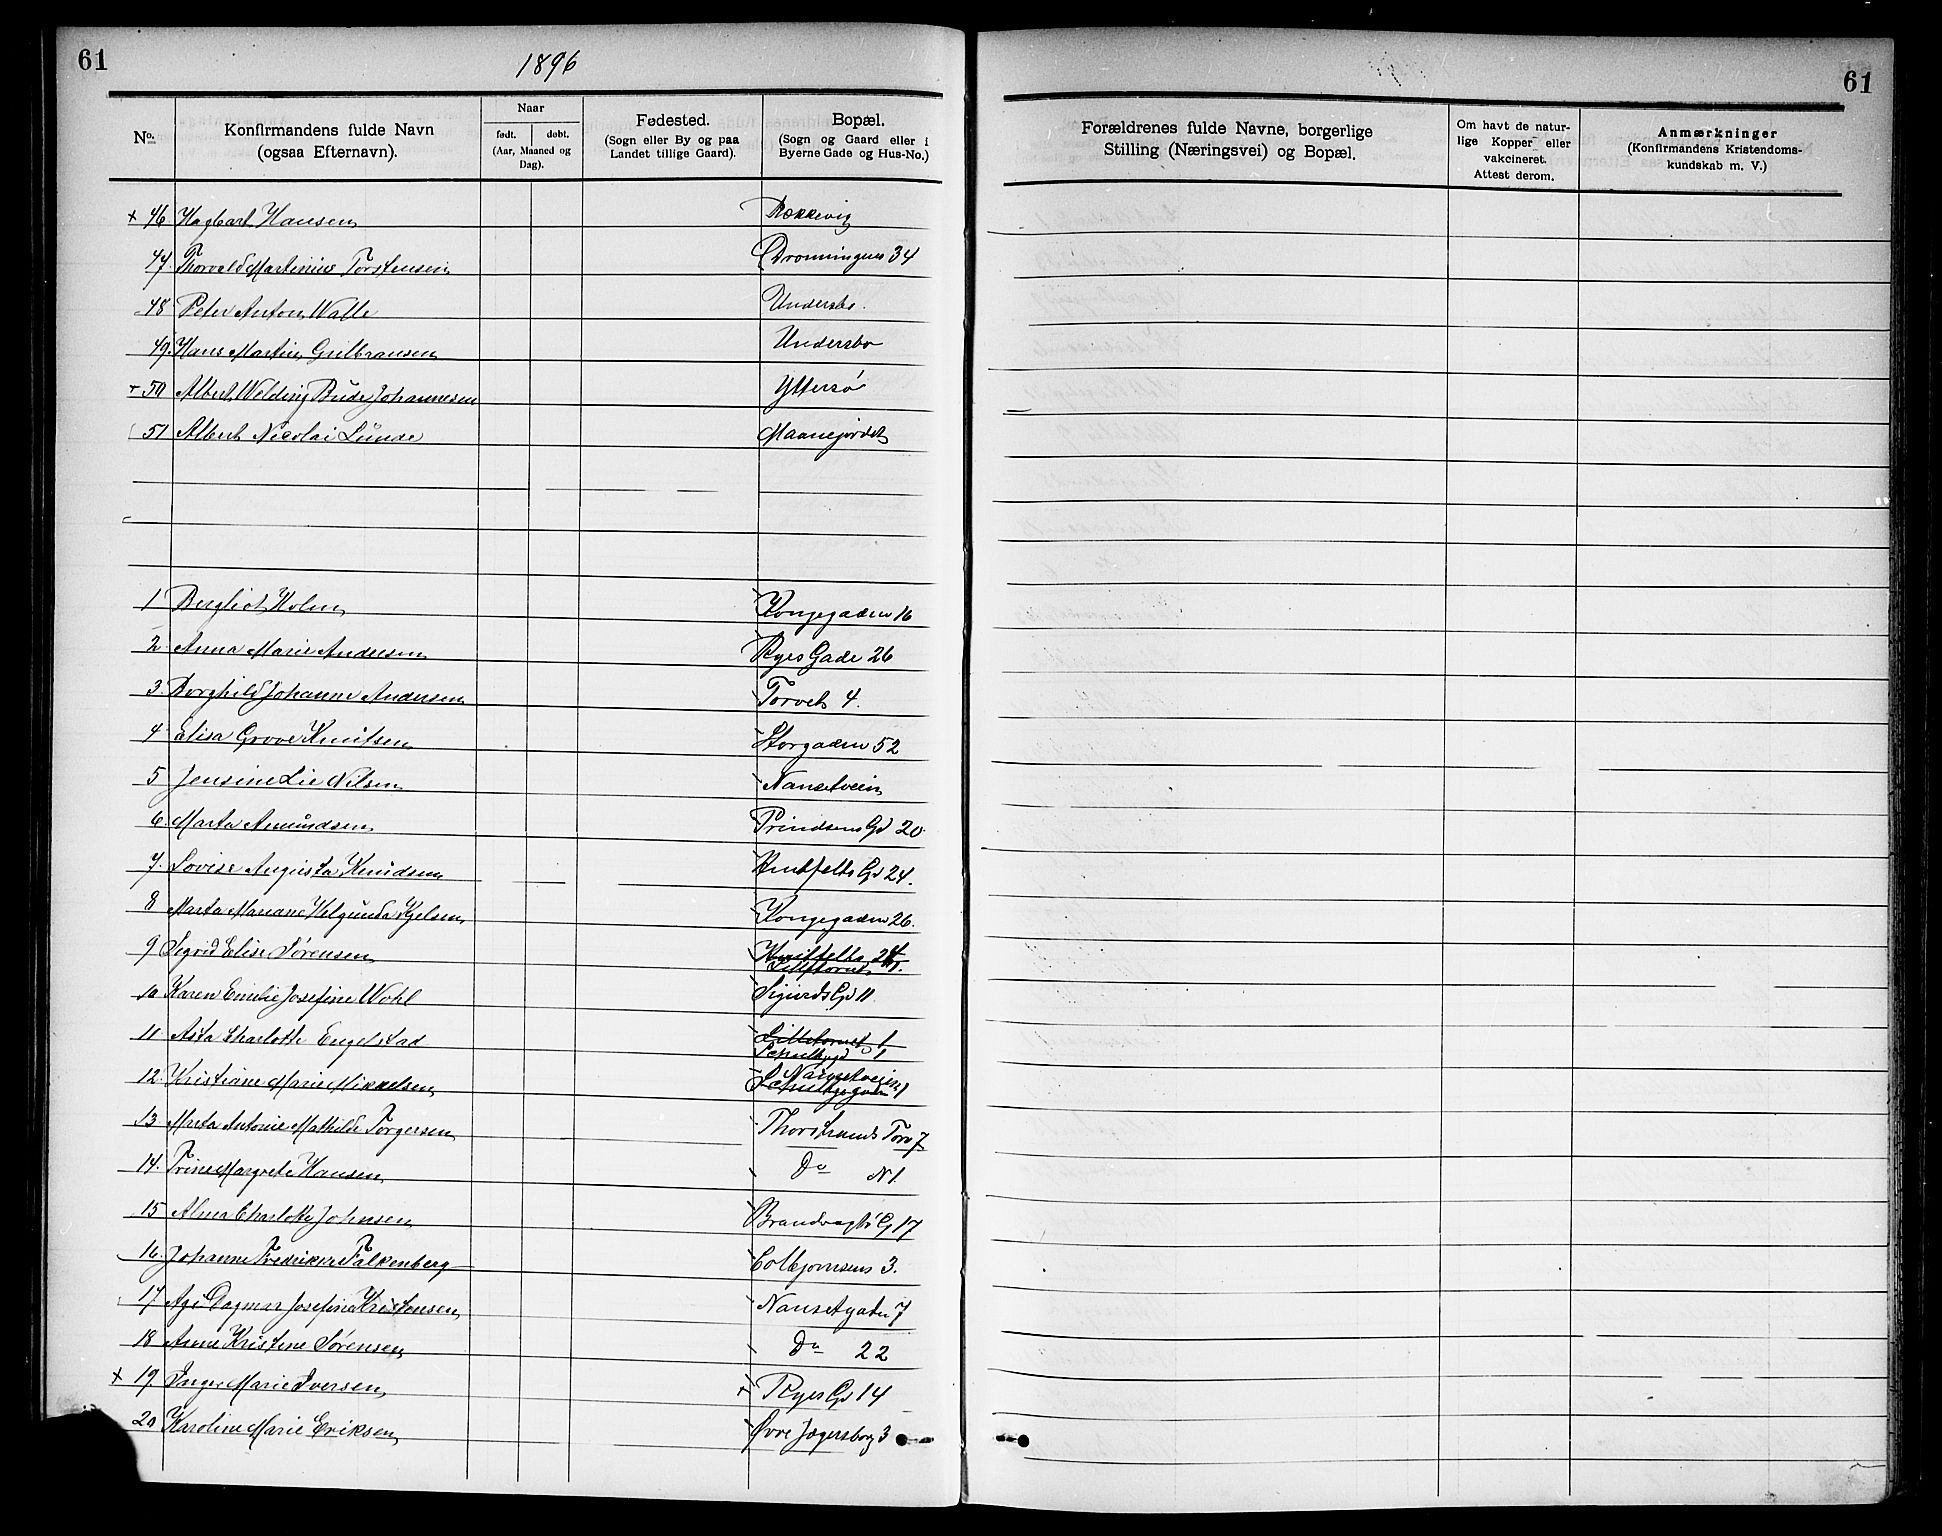 61
1896
No. Konfirmandens fulde Navn (ogsaa Efternavn). Naar født. døbt. (Aar, Maaned og Dag). Fødested. (Sogn eller By og paa Landet tillige Gaard). Bopæl. (Sogn og Gaard eller i Byerne Gade og Hus-No.)
× 46 Hagbart Hansen Rækkevig
47. Thorvald Martinius Torstensen Dronningens 34
48 Peter Anton Walle Undersbo.
49. Hans Martin Gulbransen Undersbo
+ 50 Albert Welding Bude Johannesen Yttersø
51 Albert Nicolai Lunde Maanejordet
1 Bergliot Holm Kongegaden 16
2. Anna Marie Andersen Ryes Gade 26
3. Borghild Johanne Andersen Torvet 4.
4 Elisa Grove Knutsen Storgaden 52
5 Jensine Lie Nilsen Nansetveien
6. Marta Amundsen Prindsens Gd 20.
7. Lovise Augusta Knudsen Huitfelts Gd 24.
8 Marta Mariane Helgunda Kjelsen Kongegaden 26.
9 Sigrid Elise Sørensen Huitfelts 24 Lilletorvet 1.
10 Karen Emilie Josefine Wohl Sigurds Gd 11.
11. Asta Charlotte Engelstad Lilletorvet 1
1
12. Kristiane Marie Mikkelsen Nansetveien 1
13. Marta Antonie Mathilde Torgersen Thorstrands Torv 7
14. Trine Margrete Hansen Do N 1.
15 Alma Charlotte Johnsen Brandvagts G 17
16. Johanne Fredrikke Falkenberg Colbjørnsens 3.
17 Dagmar Josefine Kristensen Nansetgaten 7
18 Anne Kristine Sørensen Do 22
× 19 Inger Marie Iversen + Ryes Gd 14
20 Karoline Marie Eriksen Øvre Jægersborg 3
61
Forældrenes fulde Navne, borgerlige Stilling (Næringsvei) og Bopæl. Om havt de naturlige Kopper eller vakcineret. Attest derom. Anmærkninger (Konfirmandens Kristendomskundskab m. V.)